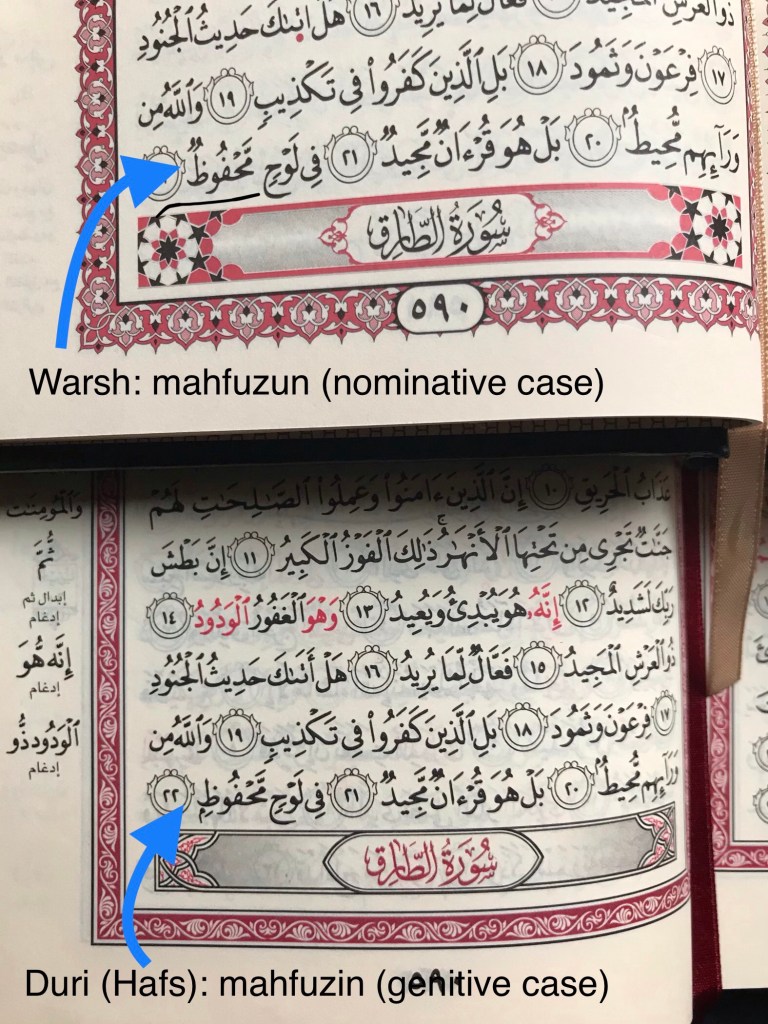 ذُو الْعَرْشِ الْمَجِيدُ فَعَّالٌ لِّمَا يُرِيدُ ١٦ هَلْ أَتَىٰكَ حَدِيثُ الْجُنُودِ
١٧ فِرْعَوْنَ وَثَمُودَ ١٨ بَلِ الَّذِينَ كَفَرُوا۟ فِى تَكْذِيبٍ ١٩ وَاللَّهُ مِن
وَرَآئِهِم مُّحِيطٌ ٢٠ بَلْ هُوَ قُرْءَانٌ مَّجِيدٌ ٢١ فِى لَوْحٍ مَّحْفُوظٌ
سُورَةُ الطَّارِقِ
٥٩٠
Warsh: mahfuzun (nominative case)
عَذَابُ الْحَرِيقِ ١٠ إِنَّ الَّذِينَ ءَامَنُوا۟ وَعَمِلُوا۟ الصَّـٰلِحَـٰتِ لَهُمْ
جَنَّـٰتٌ تَجْرِى مِن تَحْتِهَا الْأَنْهَـٰرُ ذَٰلِكَ الْفَوْزُ الْكَبِيرُ ١١ إِنَّ بَطْشَ
رَبِّكَ لَشَدِيدٌ ١٢ إِنَّهُۥ هُوَ يُبْدِئُ وَيُعِيدُ ١٣ وَهْوَ الْغَفُورُ الْوَدُودُ ١٤
ذُو الْعَرْشِ الْمَجِيدُ ١٥ فَعَّالٌ لِّمَا يُرِيدُ ١٦ هَلْ أَتَىٰكَ حَدِيثُ الْجُنُودِ
١٧ فِرْعَوْنَ وَثَمُودَ ١٨ بَلِ الَّذِينَ كَفَرُوا۟ فِى تَكْذِيبٍ ١٩ وَاللَّهُ مِن
وَرَآئِهِم مُّحِيطٌ ٢٠ بَلْ هُوَ قُرْءَانٌ مَّجِيدٌ ٢١ فِى لَوْحٍ مَّحْفُوظٍ ٢٢
سُورَةُ الطَّارِقِ
وَالْمُومِنَـٰت
ثُمَّ
إبدال ثم
إدغام
إِنَّه هُّوَ
إدغام
الْوَدُود ذُّو
إدغام
٥٩٠
Duri (Hafs): mahfuzin (genitive case)